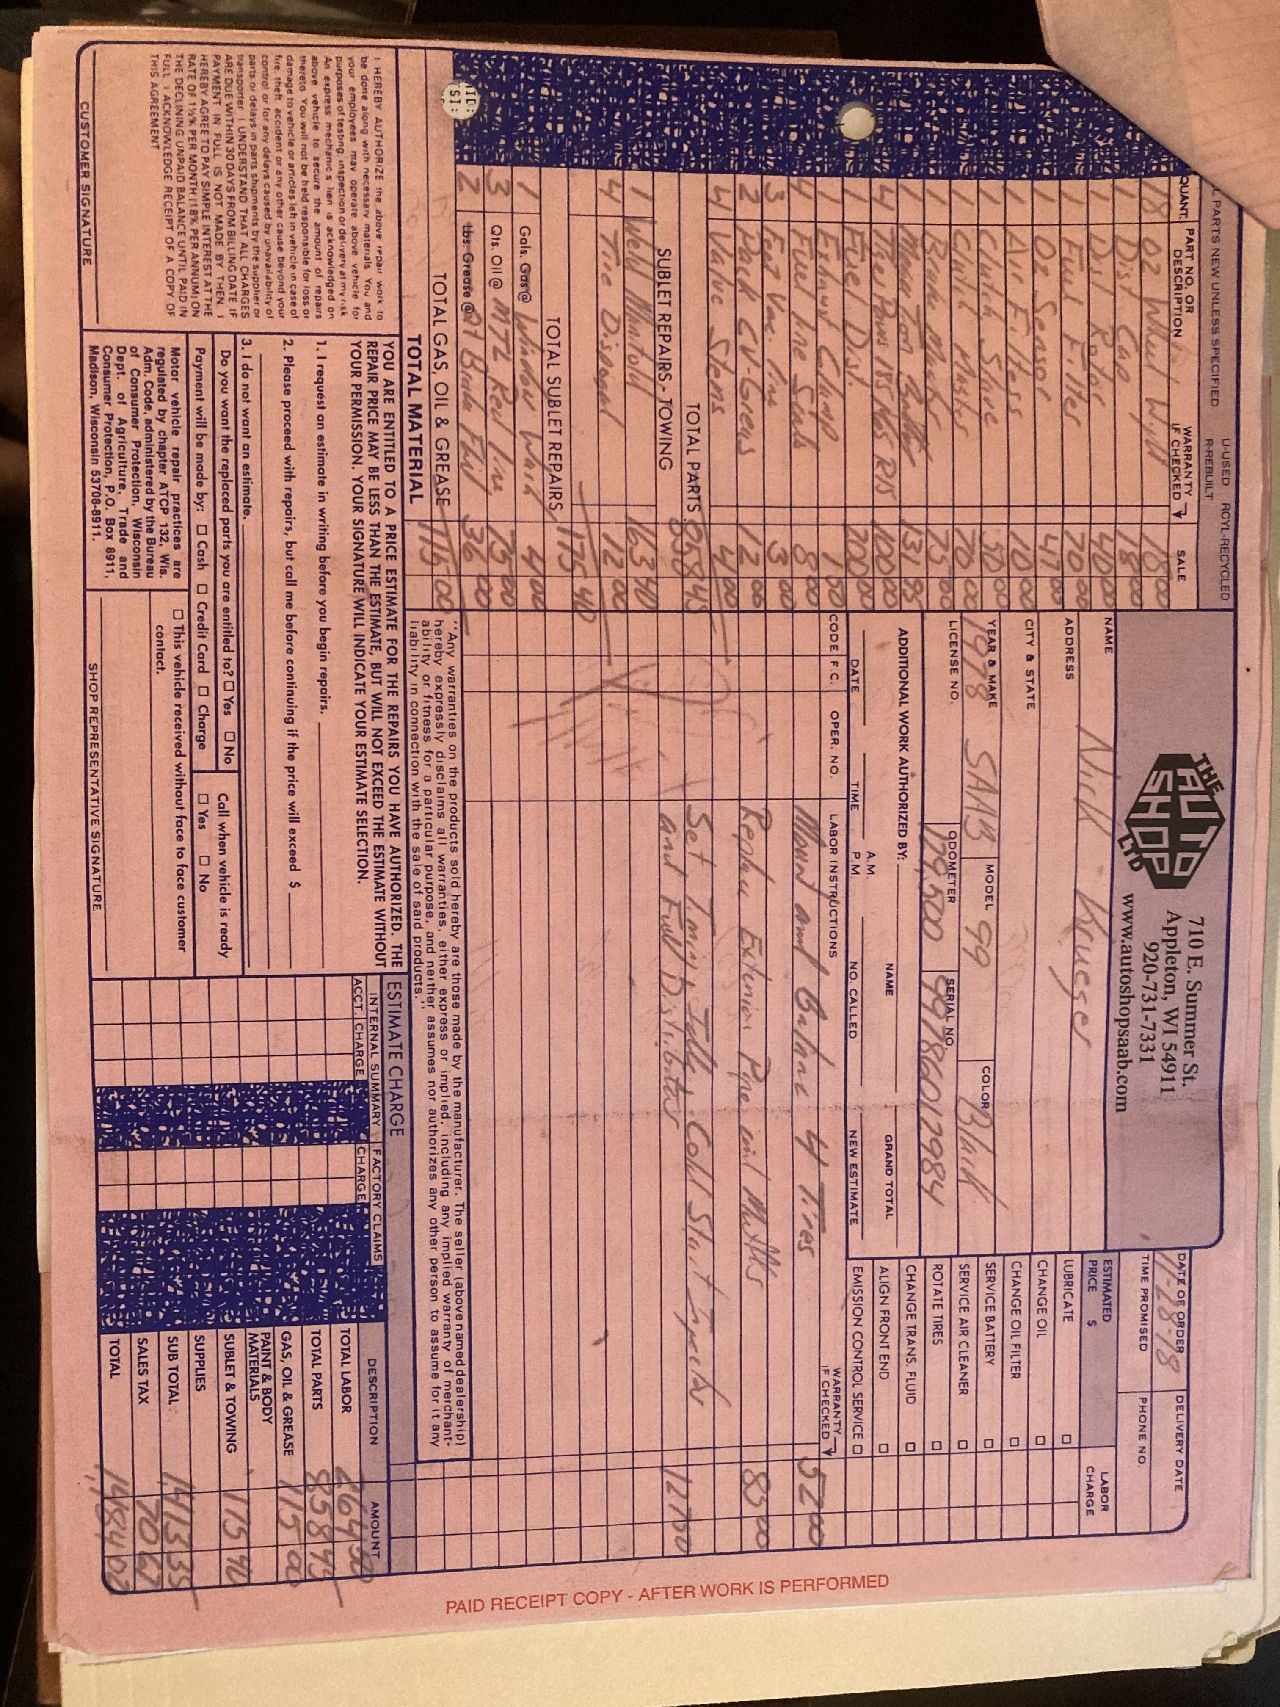 ALL PARTS NEW UNLESS SPECIFIED U-USED R-REBUILT RCYL-RECYCLED
QUANT. PART NO. OR DESCRIPTION WARRANTY IF CHECKED SALE
18 oz Wheel Wght 18 00
1 Dist Cap 18 00
1 Dist Rotor 40 00
1 Fuel Filter 20 00
1 O2 Sensor 47 00
1 Air Filter 10 00
1
1
1
4 185 R15 400 00
1 Fuel Dist 200 00
1 Exhaust Clamp 1 50
4 Fuel Line Seals 8 00
3 Ft Vac Line 3 00
2 Pack CV-Grease 12 00
4 Valve Stems 4 00
TOTAL PARTS 858 45
SUBLET REPAIRS, TOWING
1 Weld Manifold 163 40
4 Tire Disposal 12 00
TOTAL SUBLET REPAIRS 175 40
1 Gals. Gas @ Window Wash 4 00
3 Qts. Oil @ 75 00
2 Lbs. Grease @ 36 00
TOTAL GAS, OIL & GREASE 115 00
TOTAL MATERIAL
THE AUTO SHOP LTD
710 E. Summer St.
Appleton, WI 54911
920-731-7331
www.autoshopsaab.com
NAME Nick Krueger
ADDRESS
CITY & STATE
YEAR & MAKE 1978 SAAB MODEL 99 COLOR Black
LICENSE NO. ODOMETER 179,500 SERIAL NO. 99786012984
ADDITIONAL WORK AUTHORIZED BY: NAME GRAND TOTAL
DATE TIME A.M. P.M. NO. CALLED NEW ESTIMATE
DATE OF ORDER 11-28-18 DELIVERY DATE
TIME PROMISED PHONE NO.
ESTIMATED PRICE $ LABOR CHARGE
LUBRICATE
CHANGE OIL
CHANGE OIL FILTER
SERVICE BATTERY
SERVICE AIR CLEANER
ROTATE TIRES
CHANGE TRANS. FLUID
ALIGN FRONT END
EMISSION CONTROL SERVICE
CODE F.C. OPER. NO. LABOR INSTRUCTIONS WARRANTY IF CHECKED
Mount and Balance 4 Tires 52 00
Replace Extension Pipe and Muffler 85 00
Set Timing, Idle, Cold Start Injector
and Fuel Distributor 127 00
"Any warranties on the products sold hereby are those made by the manufacturer. The seller (above named dealership)
hereby expressly disclaims all warranties, either express or implied, including any implied warranty of merchant-
ability or fitness for a particular purpose, and neither assumes nor authorizes any other person to assume for it any
liability in connection with the sale of said products."
I HEREBY AUTHORIZE the above repair work to
be done along with necessary materials. You and
your employees may operate above vehicle for
purposes of testing, inspection or delivery at my risk.
An express mechanic's lien is acknowledged on
above vehicle to secure the amount of repairs
thereto. You will not be held responsible for loss or
damage to vehicle or articles left in vehicle in case of
fire, theft, accident or any other cause beyond your
control or for any delays caused by unavailability of
parts or delays in parts shipments by the supplier or
transporter. I UNDERSTAND THAT ALL CHARGES
ARE DUE WITHIN 30 DAYS FROM BILLING DATE. IF
PAYMENT IN FULL IS NOT MADE BY THEN, I
HEREBY AGREE TO PAY SIMPLE INTEREST AT THE
RATE OF 1½% PER MONTH (18% PER ANNUM) ON
THE DECLINING UNPAID BALANCE UNTIL PAID IN
FULL. I ACKNOWLEDGE RECEIPT OF A COPY OF
THIS AGREEMENT.
CUSTOMER SIGNATURE
YOU ARE ENTITLED TO A PRICE ESTIMATE FOR THE REPAIRS YOU HAVE AUTHORIZED. THE
REPAIR PRICE MAY BE LESS THAN THE ESTIMATE, BUT WILL NOT EXCEED THE ESTIMATE WITHOUT
YOUR PERMISSION. YOUR SIGNATURE WILL INDICATE YOUR ESTIMATE SELECTION.
1. I request an estimate in writing before you begin repairs.
2. Please proceed with repairs, but call me before continuing if the price will exceed $
3. I do not want an estimate.
Do you want the replaced parts you are entitled to? Yes No
Payment will be made by: Cash Credit Card Charge
Call when vehicle is ready
Yes No
Motor vehicle repair practices are
regulated by chapter ATCP 132, Wis.
Adm. Code, administered by the Bureau
of Consumer Protection, Wisconsin
Dept. of Agriculture, Trade and
Consumer Protection, P.O. Box 8911,
Madison, Wisconsin 53708-8911.
This vehicle received without face to face customer
contact.
SHOP REPRESENTATIVE SIGNATURE
ESTIMATE CHARGE
INTERNAL SUMMARY FACTORY CLAIMS DESCRIPTION AMOUNT
ACCT. CHARGE CHARGE
TOTAL LABOR 264 50
TOTAL PARTS 858 45
GAS, OIL & GREASE 115 00
PAINT & BODY MATERIALS
SUBLET & TOWING 175 40
SUPPLIES
SUB TOTAL 1,413 35
SALES TAX 70 67
TOTAL 1,484 02
PAID RECEIPT COPY - AFTER WORK IS PERFORMED